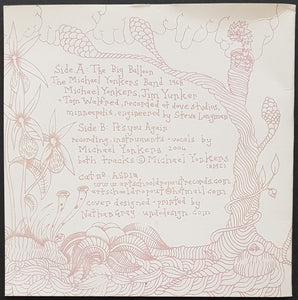 Side A - The Big Balloon
The Michael Yonkers Band 1968
Michael Yonkers, Jim Yunker
+ Tom Wallfred, recorded at dove studios,
minneapolis, engineered by Steve Longman
Side B: It's you Again
recording, instruments + vocals by
Michael Yonkers 2006
both tracks © Michael Yonkers
(BMI)
cat no. ASD12
www.artschooldropoutrecords.com
artschooldropout@hotmail.com
cover designed + printed by
Nathan Gray